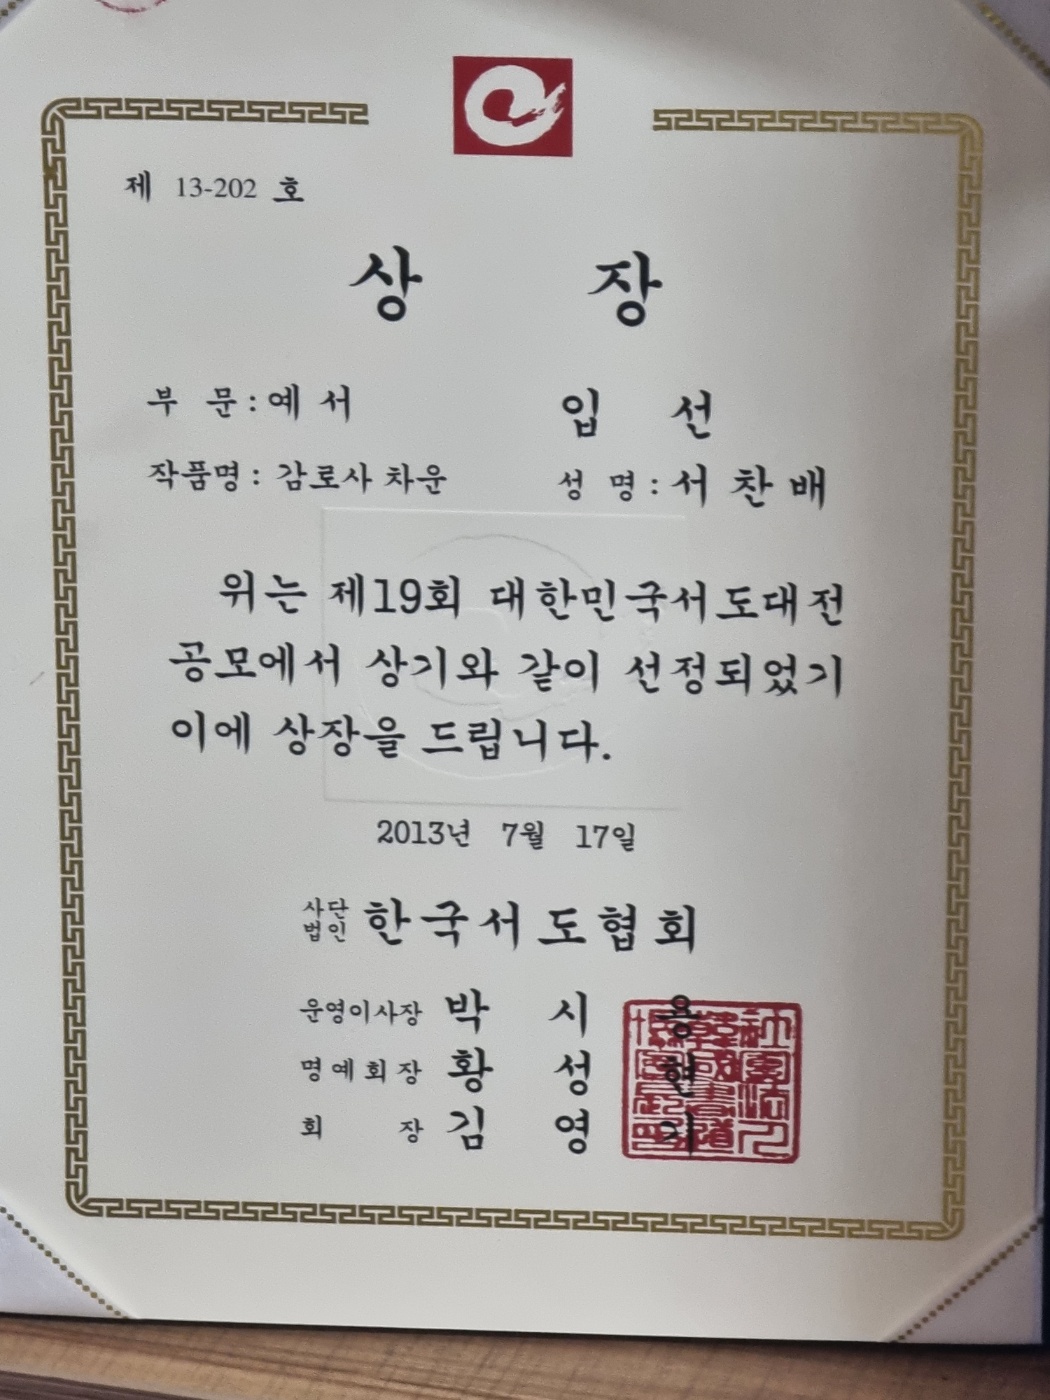 제 13-202 호
상 장
부 문 : 예 서
입 선
작품명 : 감로사 차운
성 명 : 서 찬 배
위는 제19회 대한민국서도대전
공모에서 상기와 같이 선정되었기
이에 상장을 드립니다.
2013년 7월 17일
사단법인 한국서도협회
운영이사장 박 시 용
명예회장 황 성 현
회 장 김 영 기